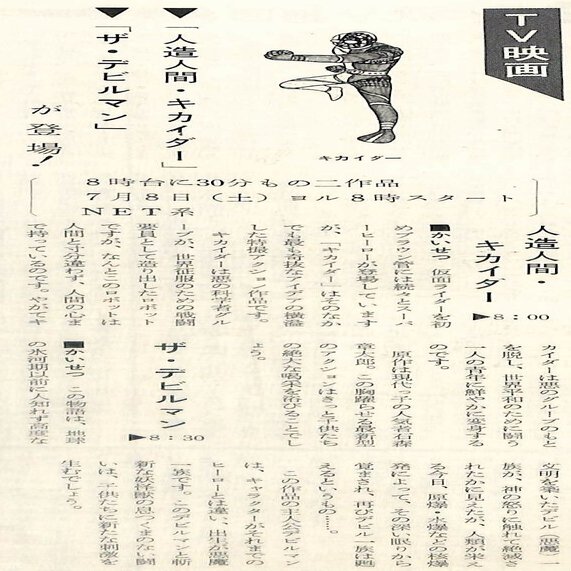 TV映画
キカイダー
▼「人造人間・キカイダー」
▼「ザ・デビルマン」
が登場!
8時台に30分もの二作品
7月8日(土)ヨル8時スタート
NET系
人造人間・
キカイダー
▶8:00
■かいせつ 仮面ライダーを初
めブラウン管には続々とスーパ
ーヒーローが登場しています
が、「キカイダー」はそのなか
でも最も奇抜なアイデアの横溢
した特撮アクション作品です。
キカイダーは悪の科学者グル
ープが、世界征服のための戦闘
要員として造り出したロボット
ですが、なんとこのロボットは
人間と寸分違わず、人間の心ま
で持っているのです。やがてキ
カイダーは悪のグループのもと
を脱し、世界平和のために闘う
一人の青年に鮮やかに変身する
のです。
原作は現代っ子の人気者石森
章太郎。この胸躍らせる最新型
のアクションはきっと子供たち
の絶大な喝采を浴びることでし
ょう。
ザ・デビルマン
▶8:30
■かいせつ この物語は、地球
の氷河期以前に人知れず高度な
文明を築いたデビル(悪魔)一
族が、神の怒りに触れて絶滅さ
れたかに見えたが、人類が栄え
る今日、原爆・水爆などの核爆
発によって、その深い眠りから
覚まされ、再びデビル一族は甦
えるというもの……。
この作品の主人公デビルマン
は、キャラクターがそれまでの
ヒーローとは違い、出生が悪魔
一族です。このデビルマンと斬
新な妖怪獣の息つくまのない闘
いは、子供たちに新たな刺激を
生むでしょう。